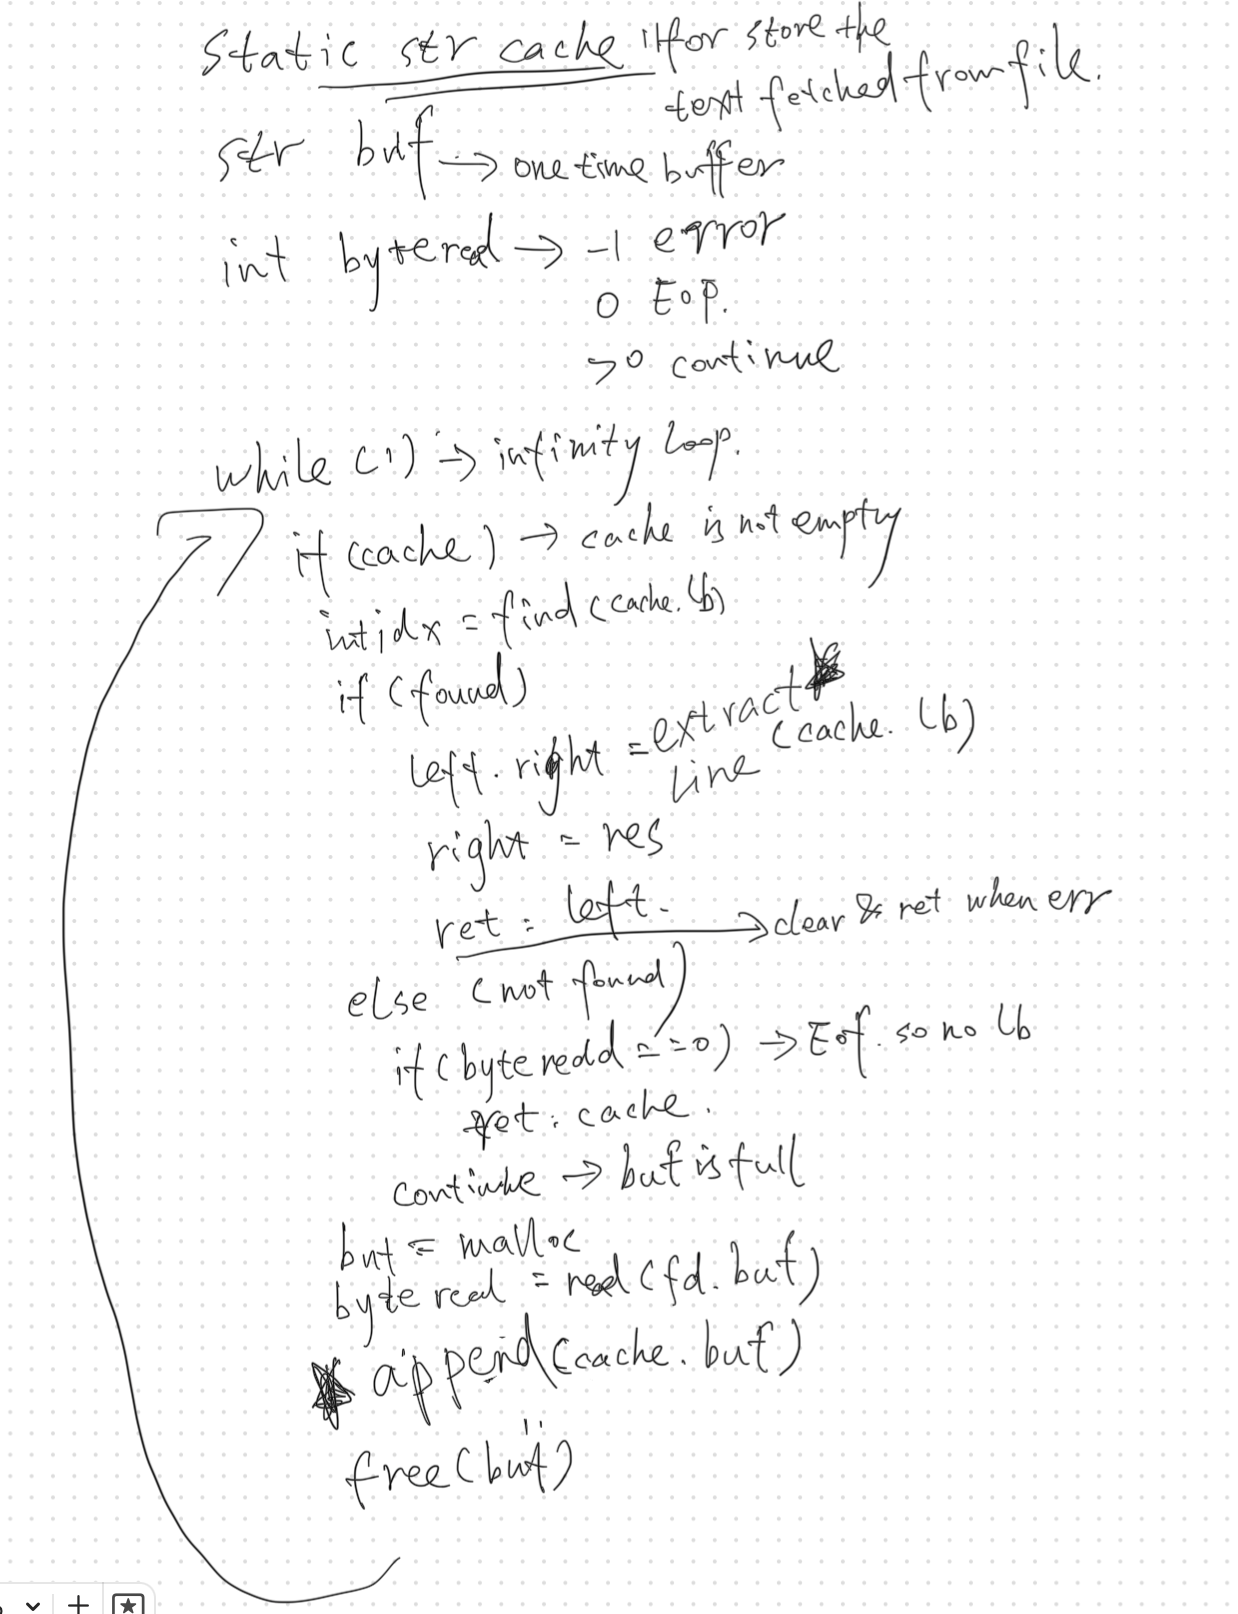 static str cache "for store the
text fetched from file.
str buf → one time buffer
int byteread → -1 error
0 EoF.
>0 continue
while (1) → infinity loop.
if (cache) → cache is not empty
int idx = find (cache. lb)
if (found)
left. right = extract
Line (cache. lb)
right = res
ret : left. → clear & ret when err
else (not found)
if (byteredd == 0) → Eof. so no lb
ret : cache.
continue → buf is full
buf = malloc
byte read = read (fd. buf)
append (cache. buf)
free (buf)